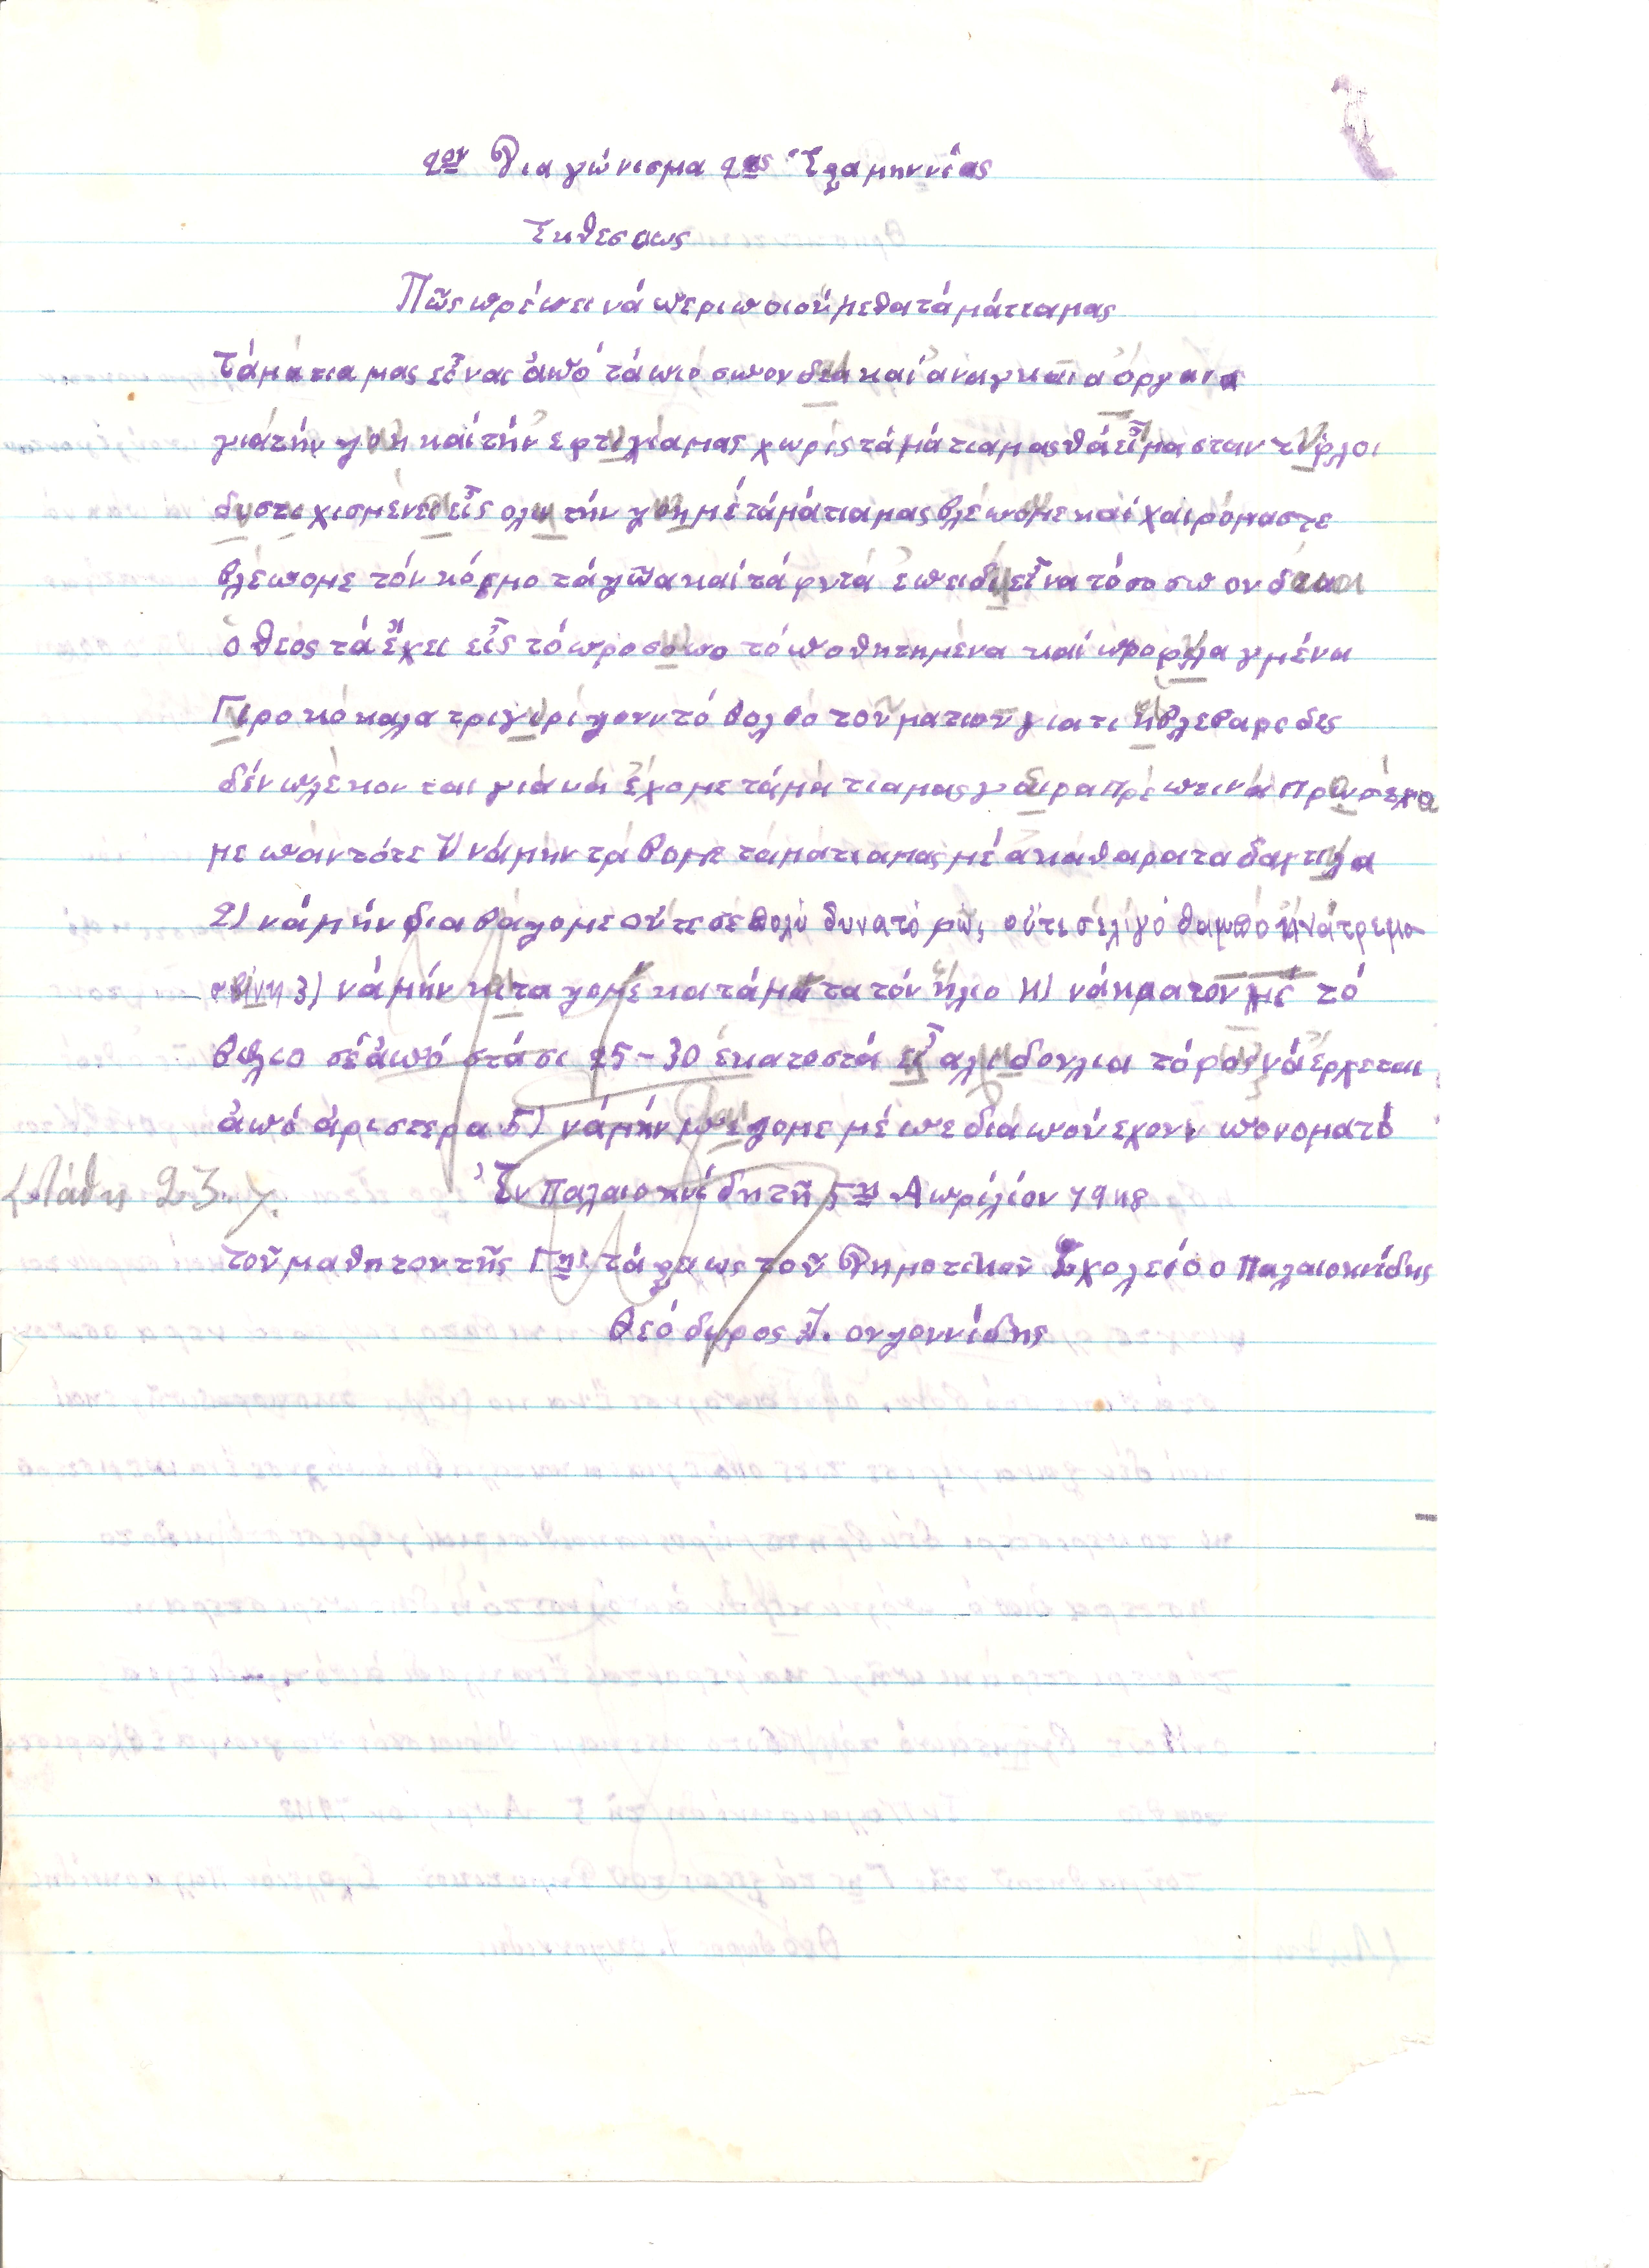 2ον Διαγώνισμα 2ας Ἑξαμηννίας
Ἐκθεσεως
Πῶς πρέπει νά περιποιούμεθα τά μάτια μας
Τά μάτια μας εἶναι ἀπό τά πιό σπουδεά καί αναγκαία όργανα
γιά τήν ζοή καί τήν εφτιχία μας χωρίς τά μάτια μας θά εἴμασταν τύφλοι
δυστιχισμένει εἶς ολη τήν ζοη μέ τά μάτια μας βλέπομε καί χαιρόμαστε
βλέπομε τόν κόσμο τά ζῶα καί τά φυτά επειδή εἶνα τόσο σπουδαια
ο θεός τά ἔχει εἶς τό προσοπο τοποθητημένα καί προφλαγμένα
Γιρο κόκαλα τριγιρίζουν τό βολβό τον ματιον γιατι η βλεβαριδες
δέν πλέκονται γιά νά ἔχομε τά μάτια μας γαιρα πρέπει νά προσέχο
με πάντότε 1) νά μην τρίβομε τα μάτια μας μέ ακαθαρατα δαχτιλα
2) νά μήν διαβάζομε ούτε σέ πολύ δυνατό φώς ούτε σέ λίγο θαμπό ή νά τρεμο
σβίνη 3) νά μήν κιταζομέ κατάματα τόν ήλιο 4) νά κρατουμέ τό
βιβλιο σέ ἀπόστάσι 25-30 εκατοστά εἶ αλι δουλια τό φος νά έρχεται
ἀπό ἀριστερα 5) νά μήν πεζομε μέ πεδιά πού εχουν πονοματο
Ἐν Παλαιοκνίδη τῇ 5η Απριλίου 1948
τοῦ μαθητου τῆς Γης τάξεως τοῦ Δημοτικοῦ Σχολείοο Παλαιοκνίδης
Θεόδωρος Ι. ουζουνίδης
Λάθη 23